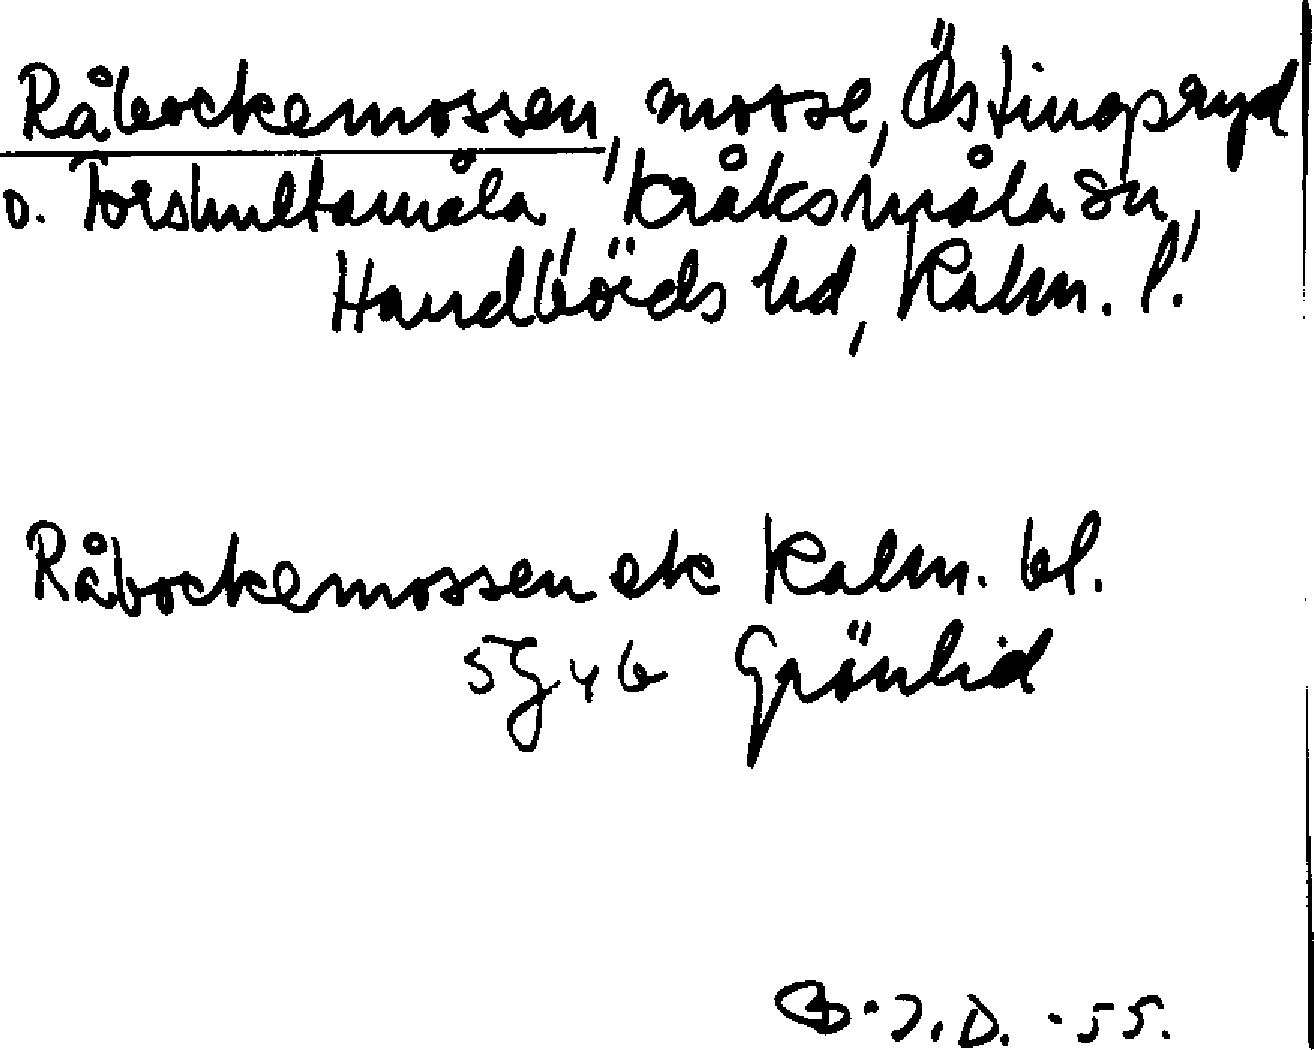 Råbockemossen, mosse, Östingpsryd
o. Torshultamåla, Kråksmåla sn,
Handbörds hd, Kalm. l.
Råbockemossen ek Kalm. bl.
5G y b Grönlid
B.J.D. -55.